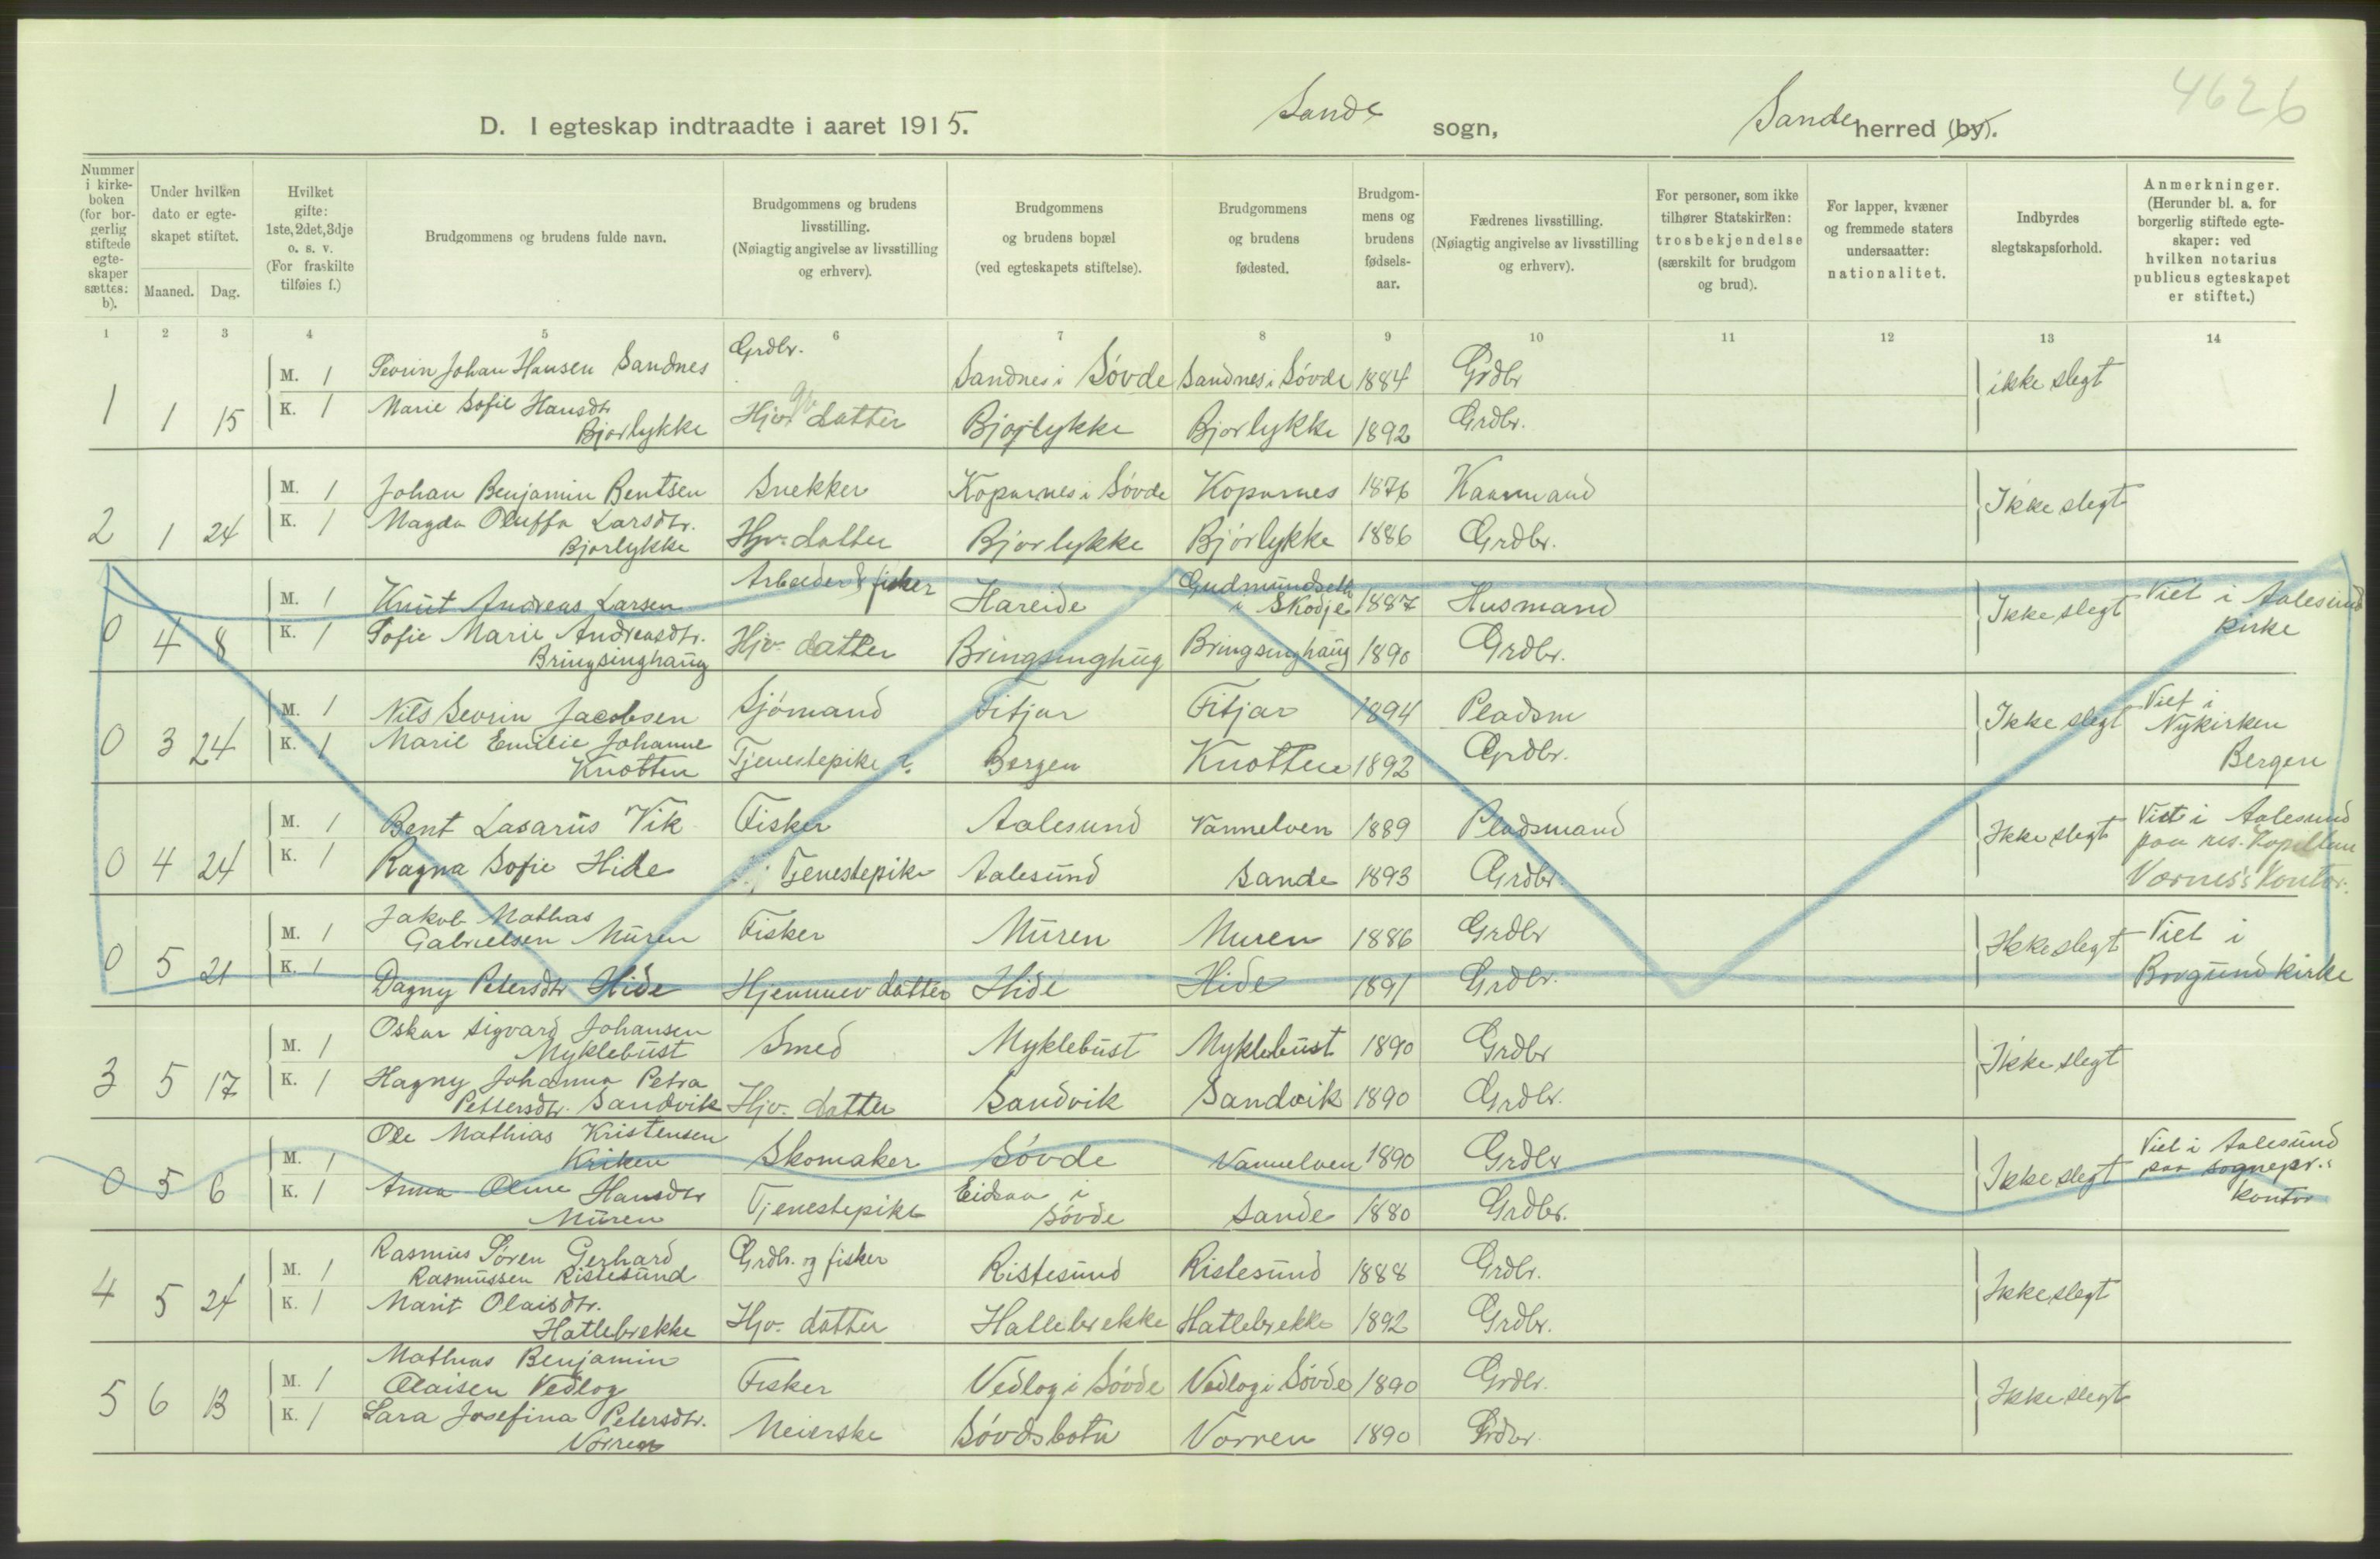 4626
D. I egteskap indtraadte i aaret 1915. Sande sogn, Sande herred (by).
Nummer i kirke-boken (for bor-gerlig stiftede egte-skaper sættes: b).
Under hvilken dato er egte-skapet stiftet.
Maaned. Dag.
Hvilket gifte: 1ste, 2det, 3dje o. s. v. (For fraskilte tilføies f.)
Brudgommens og brudens fulde navn.
Brudgommens og brudens livsstilling. (Nøiagtig angivelse av livsstilling og erhverv).
Brudgommens og brudens bopæl (ved egteskapets stiftelse).
Brudgommens og brudens fødested.
Brudgom-mens og brudens fødsels-aar.
Fædrenes livsstilling. (Nøiagtig angivelse av livsstilling og erhverv).
For personer, som ikke tilhører Statskirken: trosbekjendelse (særskilt for brudgom og brud).
For lapper, kvæner og fremmede staters undersaatter: nationalitet.
Indbyrdes slegtskapsforhold.
Anmerkninger. (Herunder bl. a. for borgerlig stiftede egte-skaper: ved hvilken notarius publicus egteskapet er stiftet.)
1 2 3 4 5 6 7 8 9 10 11 12 13 14
M. 1 Sevrin Johan Hansen Sandnes Grdbr. Sandnes i Søvde Sandnes i Søvde 1884 Grdbr ikke slegt
1 1 15 K. 1 Marie Sofie Hansdtr Bjørlykke Hjv. datter Bjørlykke Bjørlykke 1892 Grdbr.
M. 1 Johan Benjamin Bentsen Snekker Koparnes i Søvde Koparnes 1876 Kaarmand Ikke slegt
2 1 24 K. 1 Magda Oluffa Larsdtr. Bjørlykke Hjv. datter Bjørlykke Bjørlykke 1886 Grdbr.
M. 1 Knut Andreas Larsen Arbeider & fisker Hareide Gudmundseth i Skodje 1887 Husmand Ikke slegt Viet i Aalesund kirke
0 4 8 K. 1 Sofie Marie Andreasdtr. Bringsinghaug Hjv. datter Bringsinghug Bringsinghaug 1890 Grdbr.
M. 1 Nils Sevrin Jacobsen Sjømand Fitjar Fitjar 1894 Pladsm Ikke slegt Viet i Nykirken Bergen
0 3 24 K. 1 Marie Emilie Johanne Knotten Tjenestepike Bergen Knotten 1892 Grdbr.
M. 1 Bent Lasarus Vik Fisker Aalesund Vannelven 1889 Pladsmand Ikke slegt Viet i Aalesund paa res. Kapellan Vornes's Kontor.
0 4 24 K. 1 Ragna Sofie Hide Tjenestepike Aalesund Sande 1893 Grdbr.
M. 1 Jakob Mathias Gabrielsen Muren Fisker Muren Muren 1886 Grdbr Ikke slegt Viet i Borgund kirke
0 5 21 K. 1 Dagny Petersdtr Hide Hjemmev datter Hide Hide 1891 Grdbr.
M. 1 Oskar Sigvard Johansen Myklebust Smed Myklebust Myklebust 1890 Grdbr Ikke slegt
3 5 17 K. 1 Hagny Johanna Petra Pettersdtr. Sandvik Hjv. datter Sandvik Sandvik 1890 Grdbr.
M. 1 Ole Mathias Kristensen Kriken Skomaker Søvde Vannelven 1890 Grdbr Ikke slegt Viet i Aalesund paa sognepr.s kontor
0 5 6 K. 1 Anna Oline Hansdtr Muren Tjenestepike Eidsaa i Søvde Sande 1880 Grdbr.
M. 1 Rasmus Søren Gerhard Rasmussen Ristesund Grdbr. og fisker Ristesund Ristesund 1888 Grdbr. Ikke slegt
4 5 24 K. 1 Marit Olaisdtr. Hatlebrekke Hjv. datter Hatlebrekke Hatlebrekke 1892 Grdbr.
M. 1 Mathias Benjamin Olaisen Vedlog Fisker Vedlog i Søvde Vedlog i Søvde 1890 Grdbr. Ikke slegt
5 6 13 K. 1 Lara Josefina Petersdtr. Vorren Meierske Søvdsbotn Vorren 1890 Grdbr.